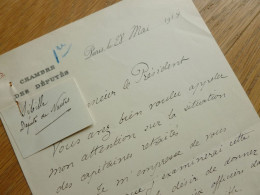 CHAMBRE
DES DÉPUTÉS
Député du
Paris, le 28 Mai
Monsieur le Président
Vous avez bien voulu appeler
mon attention sur la situation
des capitaines retraités
Je m'empresse de vous
j'examinerai cette
désir de donner
officiers